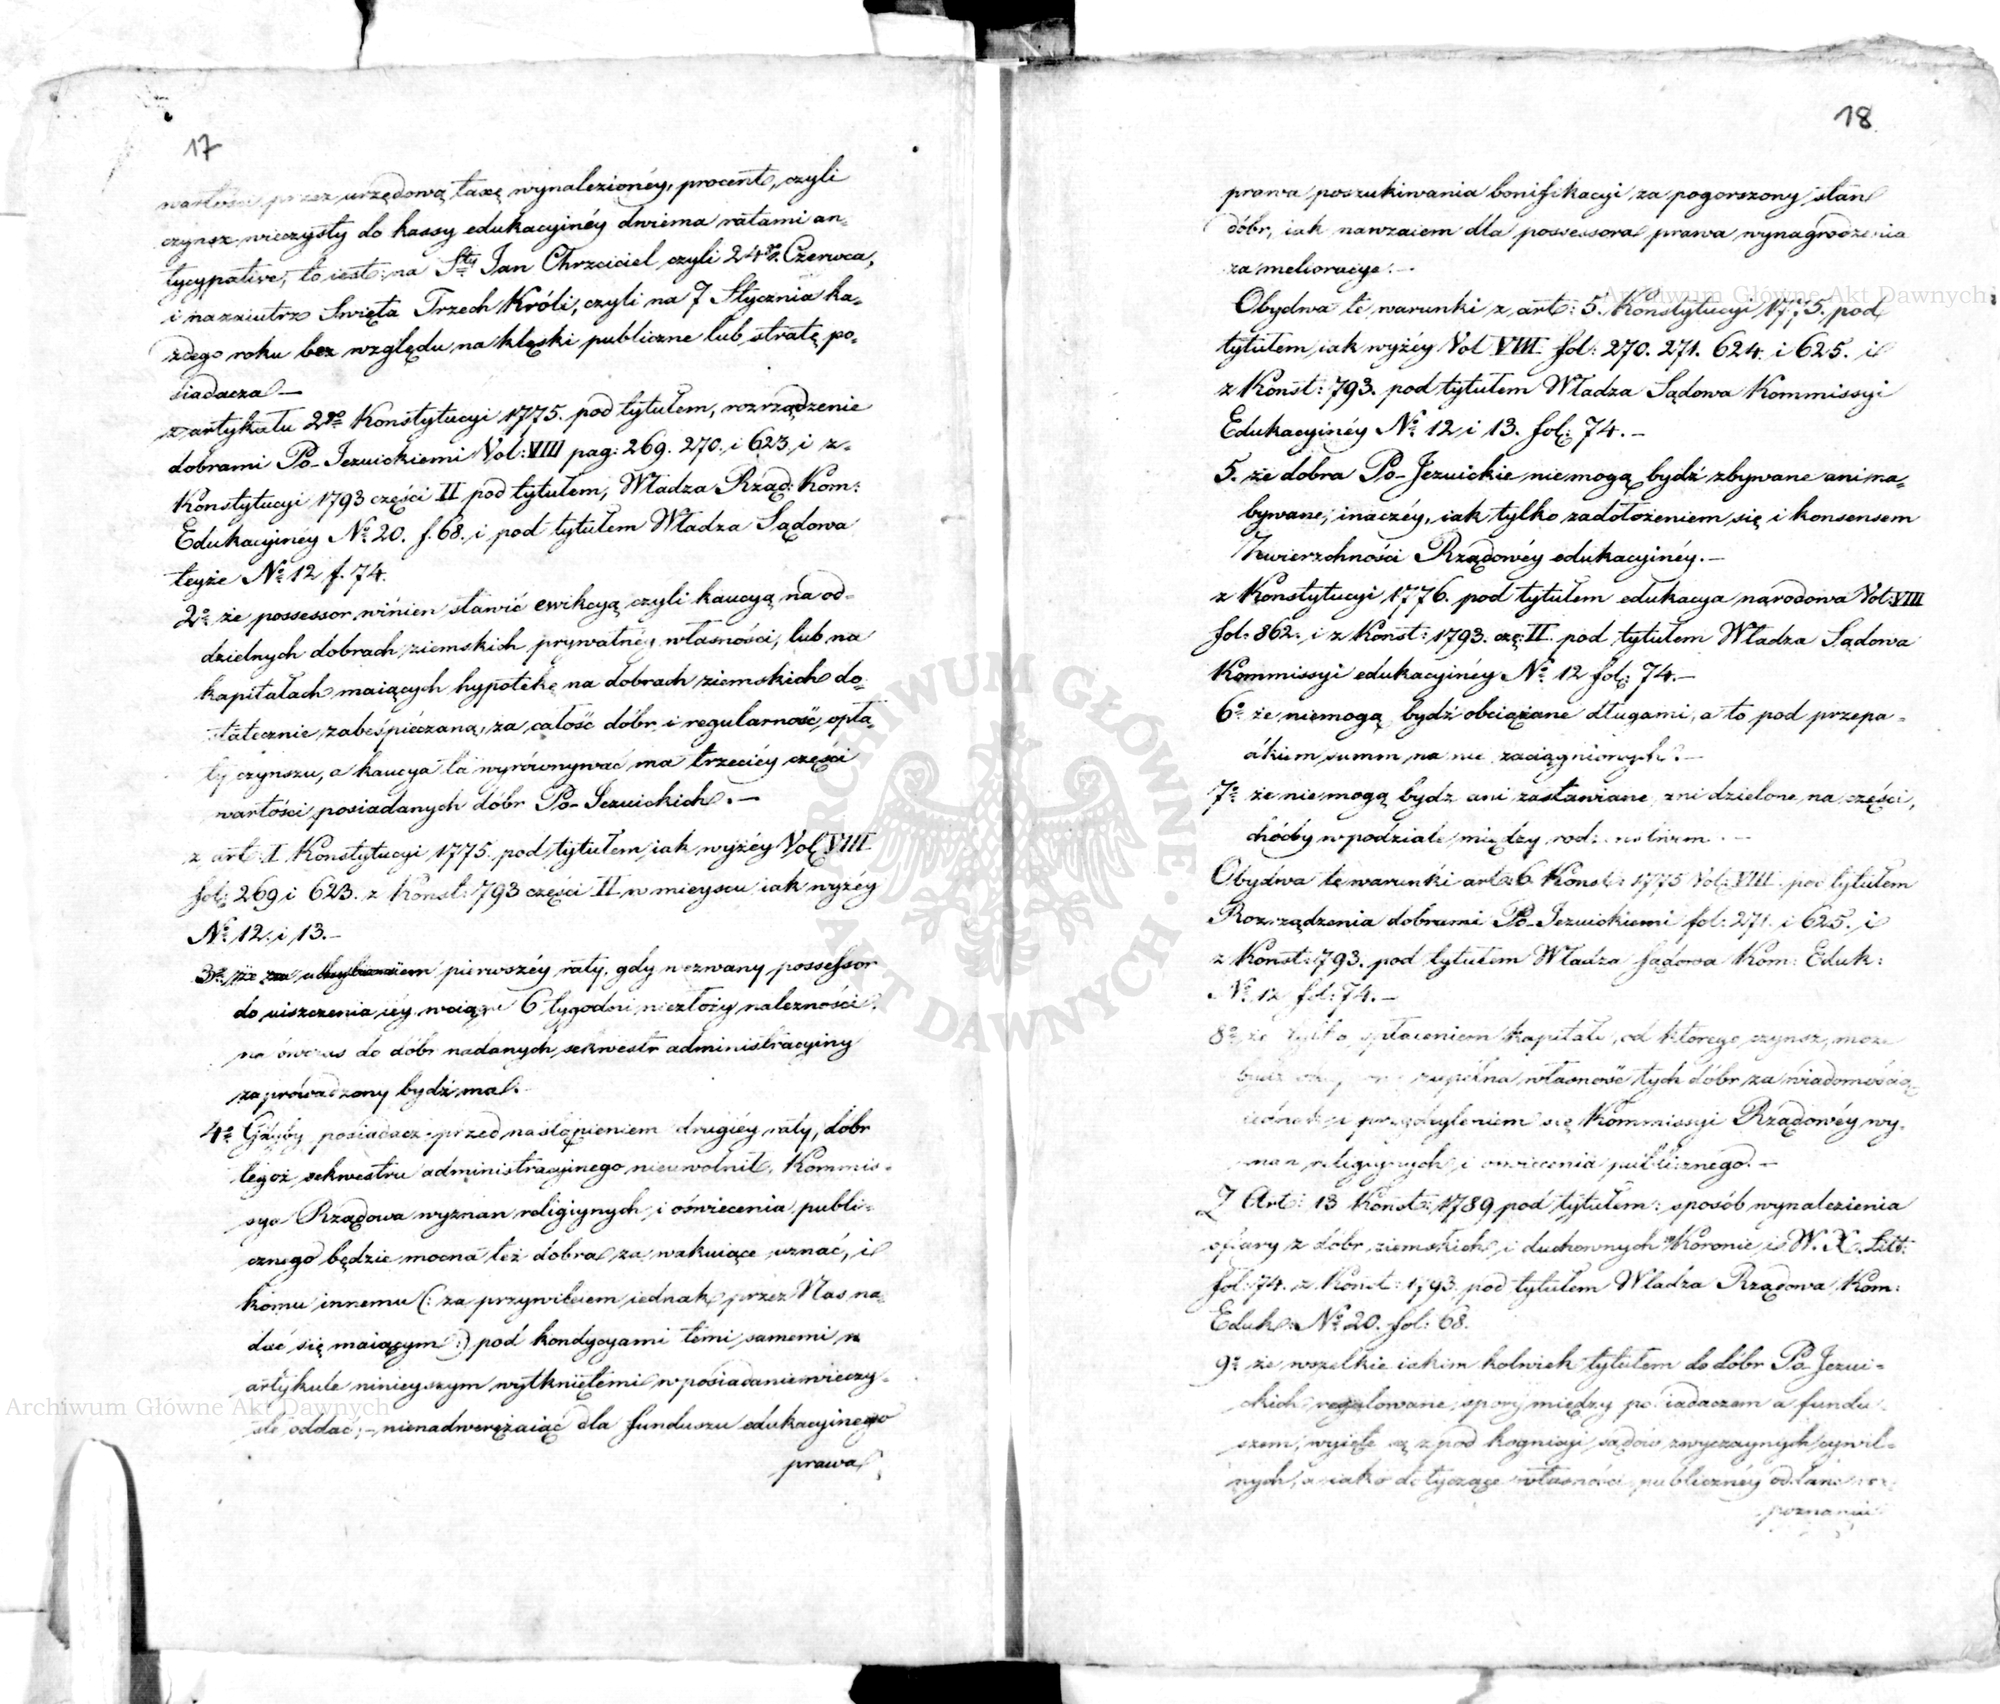 17
wartości przez urzędową taxę wynalezionéy, procent, czyli
czynsz wieczysty do kassy edukacyinéy dwiema ratami an-
tycypative, to iest: na Sty Jan Chrzciciel czyli 24go Czerwca,
i nazaiutrz Święta Trzech Króli, czyli na 7 Stycznia ka-
żdego roku bez względu na klęski publiczne lub stratę po-
siadacza —
z artykułu 2go Konstytucyi 1775. pod tytułem, rozrządzenie
dobrami Po-Jezuickiemi Vol: VIII pag: 269. 270. i 623. i z-
Konstytucyi 1793 części II pod tytułem, Władza Rząd: Kom:
Edukacyinéy No 20. f. 68. i pod tytułem Władza Sądowa
teyże No 12 f. 74.
2o że possessor winien stawić ewikcyą czyli kaucyą na od-
dzielnych dobrach ziemskich prywatnéy własności, lub na
kapitałach maiących hypotekę na dobrach ziemskich do-
statecznie zabeśpieczaną, za całość dóbr i regularność opła-
ty czynszu, a kaucya ta wyrównywać ma trzeciéy części
wartości posiadanych dóbr Po-Jezuickich. —
z art: I Konstytucyi 1775. pod tytułem iak wyżéy Vol VIII
fol: 269 i 623. z Konst: 793 części II w mieyscu iak wyżéy
No 12. i 13. —
3o że za uchybieniem pierwszéy raty, gdy wezwany possessor
do uiszczenia iéy w ciągu 6 tygodni niezłoży należności,
na ówczas do dóbr nadanych sekwestr administracyiny
zaprówadzony bydź ma. —
4o Gdyby posiadacz przed nastąpieniem drugiéy raty, dóbr
tegoż sekwestru administracyinego nieuwolnił, Kommis-
sya Rządowa wyznań religiynych i oświecenia publi-
cznego będzie mocna też dobra za wakuiące uznać, i
komu innemu (: za przywileiem iednak przez Nas na-
dać się maiącym :) pod kondycyami temi samemi w
artykule ninieyszym wytkniętemi w posiadanie wieczy-
ste oddać; — nienadwerężaiąc dla funduszu edukacyinego
prawa
18
prawa poszukiwania bonifikacyi za pogorszony stan
dóbr, iak nawzaiem dla possessora prawa wynagrodzenia
za melioracye. —
Obydwa te warunki z art: 5. Konstytucyi 1775. pod
tytułem iak wyżéy Vol VIII fol: 270. 271. 624. i 625. i
z Konst: 793. pod tytułem Władza Sądowa Kommissyi
Edukacyinéy No 12 i 13. fol: 74. —
5. że dobra Po-Jezuickie niemogą bydź zbywane ani na-
bywane, inaczéy, iak tylko zadołożeniem się i konsensem
Zwierzchności Rządowéy edukacyinéy. —
z Konstytucyi 1776. pod tytułem edukacya narodowa Vol: VIII
fol: 862. i z Konst: 1793. czę: II. pod tytułem Władza Sądowa
Kommissyi edukacyinéy No 12 fol: 74. —
6o że niemogą bydź obciążane długami, a to pod przepa-
dkiem summ na nie zaciągnionych. —
7o że niemogą bydź ani zastawiane ani dzielone na części,
chócby w podziale między
Obydwa te warunki art: 6 Konst: 1775 Vol: VIII. pod tytułem
Rozrządzenia dobrami Po-Jezuickiemi fol: 271. i 625. i
z Konst: 793. pod tytułem Władza Sądowa Kom: Eduk:
No 12 fol: 74. —
8o że tylko spłaceniem kapitału, od którego czynsz, może
bydź zupełna własność tych dóbr za wiadomością
iednak i przychyleniem się Kommissyi Rządowéy wy-
znań religiynych i oświecenia publicznego. —
Z Art: 13 Konst: 1789 pod tytułem: sposób wynalezienia
ofiary z dóbr ziemskich i duchownych w Koronie i W. X. Litt:
fol: 74. z Konst: 1793. pod tytułem Władza Rządowa Kom:
Eduk: No 20. fol: 68.
9o że wszelkie iakim kolwiek tytułem do dóbr Po-Jezui-
ckich regulowane spory między posiadaczem a fundu-
szem, wyięte są z pod kognicyi sądów zwyczaynych cywil-
nych, a iako dotyczące własności publicznéy
poznaniu
Archiwum Główne Akt Dawnych
Archiwum Główne Akt Dawnych
ARCHIWUM GŁÓWNE AKT DAWNYCH